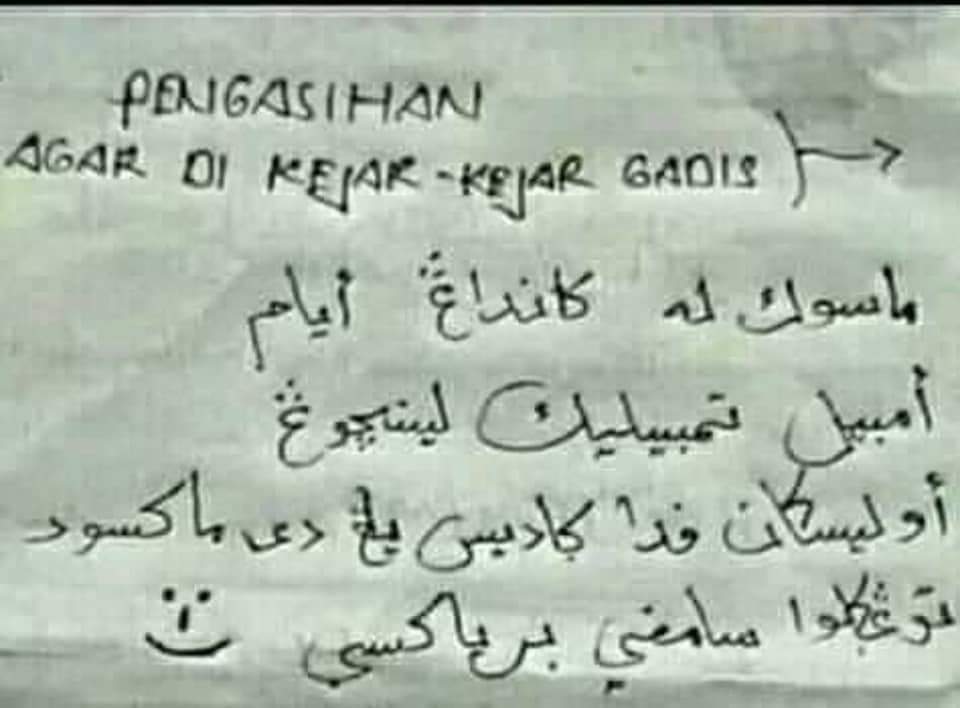 PENGASIHAN
AGAR DI KEJAR-KEJAR GADIS
ماسوك له كانداڠ أيام
أمبيل تمبيليك لينچوڠ
أوليسكان فدا ڮاديس يڠ دى ماكسود
توڠڮلوا سامفي برياكسي